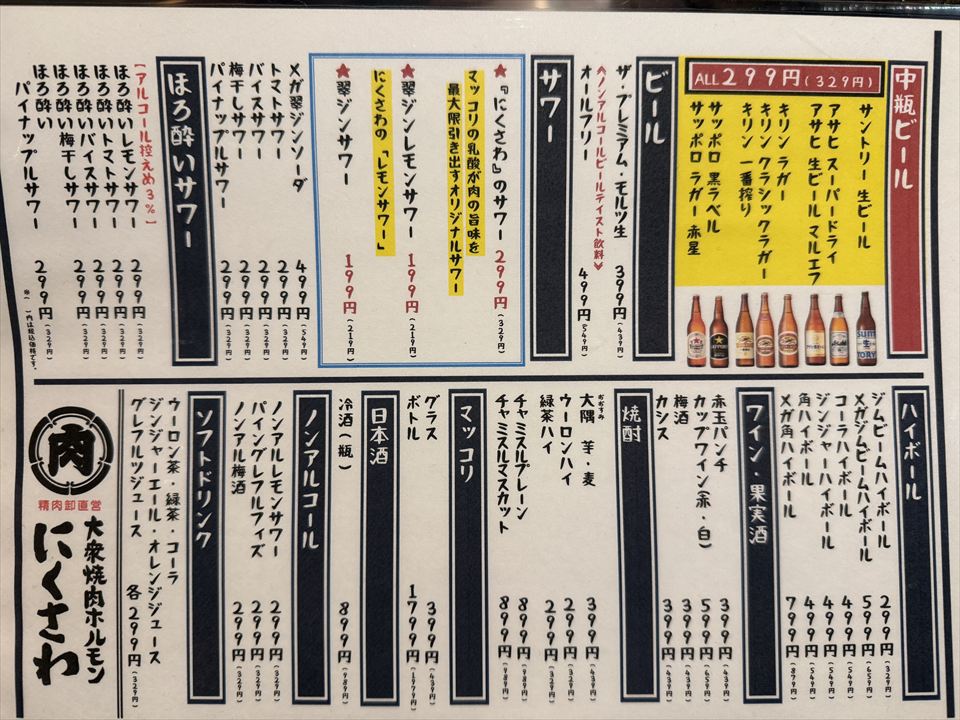 中瓶ビール
ALL 299円(329円)
サントリー 生ビール
アサヒ スーパードライ
アサヒ 生ビール マルエフ
キリン ラガー
キリン クラシックラガー
キリン 一番搾り
サッポロ 黒ラベル
サッポロ ラガー 赤星
ビール
ザ・プレミアム・モルツ生 399円(439円)
≪ノンアルコールビールテイスト飲料≫
オールフリー 499円(549円)
サワー
★『にくさわ』のサワー 299円(329円)
マッコリの乳酸が肉の旨味を
最大限引き出すオリジナルサワー
★翠ジンレモンサワー 199円(219円)
にくさわの「レモンサワー」
★翠ジンサワー 199円(219円)
メガ翠ジンソーダ 499円(549円)
トマトサワー 299円(329円)
バイスサワー 299円(329円)
梅干しサワー 299円(329円)
パイナップルサワー 299円(329円)
ほろ酔いサワー
【アルコール控えめ3%】
ほろ酔いレモンサワー 299円(329円)
ほろ酔いトマトサワー 299円(329円)
ほろ酔いバイスサワー 299円(329円)
ほろ酔い梅干しサワー 299円(329円)
ほろ酔い
パイナップルサワー 299円(329円)
※( )内は税込価格です。
ハイボール
ジムビームハイボール 299円(329円)
メガジムビームハイボール 599円(659円)
コーラハイボール 499円(549円)
ジンジャーハイボール 499円(549円)
角ハイボール 499円(549円)
メガ角ハイボール 799円(879円)
ワイン・果実酒
赤玉パンチ 399円(439円)
カップワイン(赤・白) 599円(659円)
梅酒 399円(439円)
カシス 399円(439円)
焼酎
おおすみ
大隅 芋・麦 399円(439円)
ウーロンハイ 299円(329円)
緑茶ハイ 299円(329円)
チャミスルプレーン 899円(989円)
チャミスルマスカット 899円(989円)
マッコリ
グラス 399円(439円)
ボトル 1799円(1979円)
日本酒
冷酒(瓶) 899円(989円)
ノンアルコール
ノンアルレモンサワー 299円(329円)
パイングレフルフィズ 299円(329円)
ノンアル梅酒 299円(329円)
ソフトドリンク
ウーロン茶・緑茶・コーラ
ジンジャーエール・オレンジジュース
グレフルツジュース 各299円(329円)
肉
精肉卸直営
大衆焼肉ホルモン
にくさわ